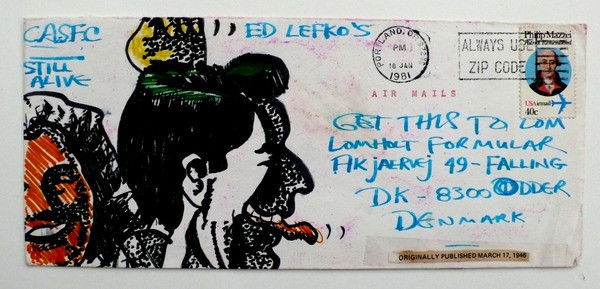 CASFC
STILL
ALIVE
ED LEFKO'S
PORTLAND, OR
PM
16 JAN
1981
ALWAYS USE
ZIP CODE
Philip Mazzei
Patriot Remembered
USAirmail
40c
AIR MAILS
GET THIS TO LOM
LOMHOLT FORMULAR
FALLING
DK - 8300 ODDER
DENMARK
ORIGINALLY PUBLISHED MARCH 17, 1946